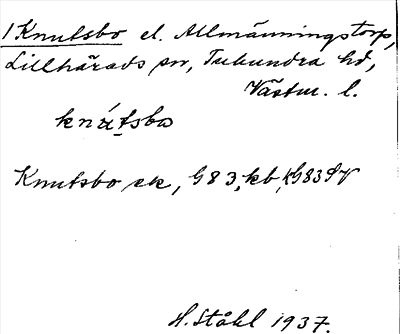 1 Knutsbo el. Allmänningstorp,
Lillhärads sn, Tuhundra hd,
Västm. l.
knú̱tsbo
Knutsbo ek, G83, kb, KG83SV
H. Ståhl 1937.